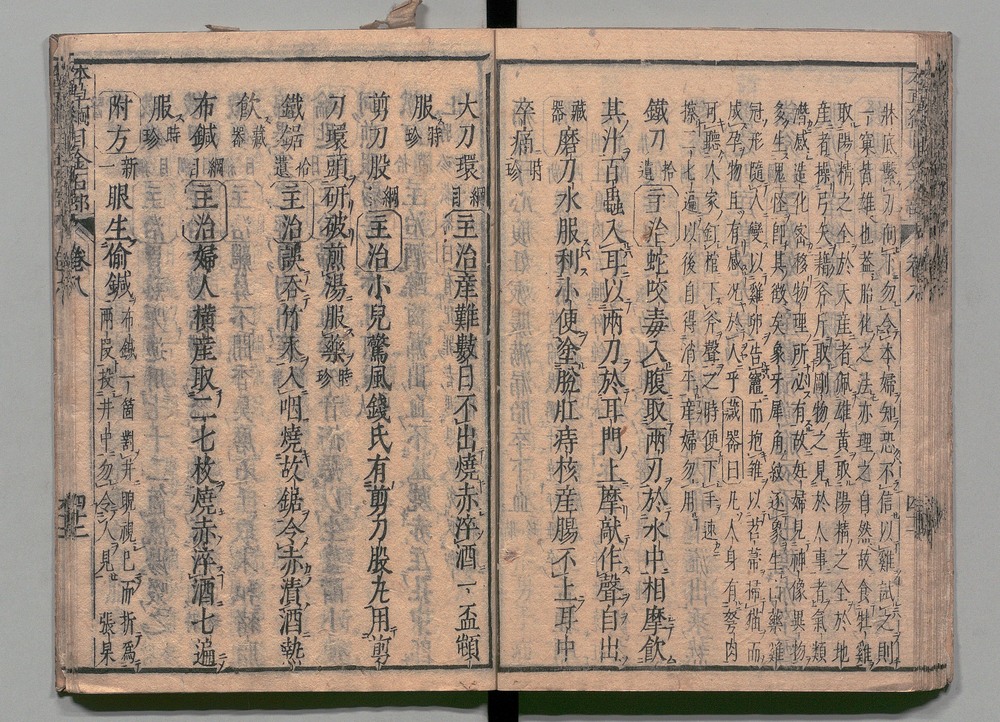 牀底繫刃向下勿令本婦知恐不信以雞試之則
一窠皆雄也蓋胎化之法亦理之自然故食牡雞
取陽精之全於天産者佩雄黃取陽精之全於地
産者操弓矢藉斧斤取剛物之見於人事者氣類
潛感造化密移物理所必有故妊婦見神像異物
多生鬼怪即其徵矣象牙犀角紋逐象生山藥雞
冠形隨人變以雞卵告竈而抱雛以苕帚掃猫而
成孕物且有感況於人乎藏器曰凡人身有弩肉
可聽人家釘棺下斧聲之時便下手速
擦二七遍以後自得消平産婦勿用
鐵刀拾遺主治蛇咬毒入腹取兩刃於水中相摩飲
其汁百蟲入耳以兩刀於耳門上摩敲作聲自出
藏器磨刀水服利小便塗脫肛痔核産腸不上耳中
卒痛時珍
大刀環綱目主治産難數日不出燒赤淬酒一盃頓
服時珍
剪刀股綱目主治小兒驚風錢氏有剪刀股丸用剪
刀環頭研破煎湯服藥時珍
鐵鋸拾遺主治誤吞竹木入咽燒故鋸令赤漬酒熱
飲藏器
布鍼綱目主治婦人横産取二七枚燒赤淬酒七遍
服時珍
附方新一眼生偷鍼布鍼一箇對井睨視已而折爲
兩段投井中勿令人見張杲
本草綱目金石部
卷八
四十二